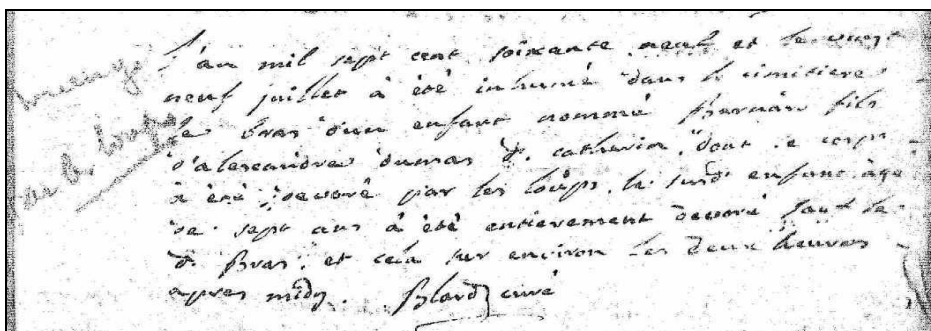 mangé
par les loups
L'an mil sept cent soixante neuf et le vingt
neuf juillet à été inhumé dans le cimitiere
le bras d'un enfant nommé fils
d'alexandre dumas & catherine dont le corps
à été devoré par les loups, le susd. enfant âgé
de sept ans à été entierement devoré sauf le
d. Bras, et cela sur environ les deux heures
apres midy. Blard curé